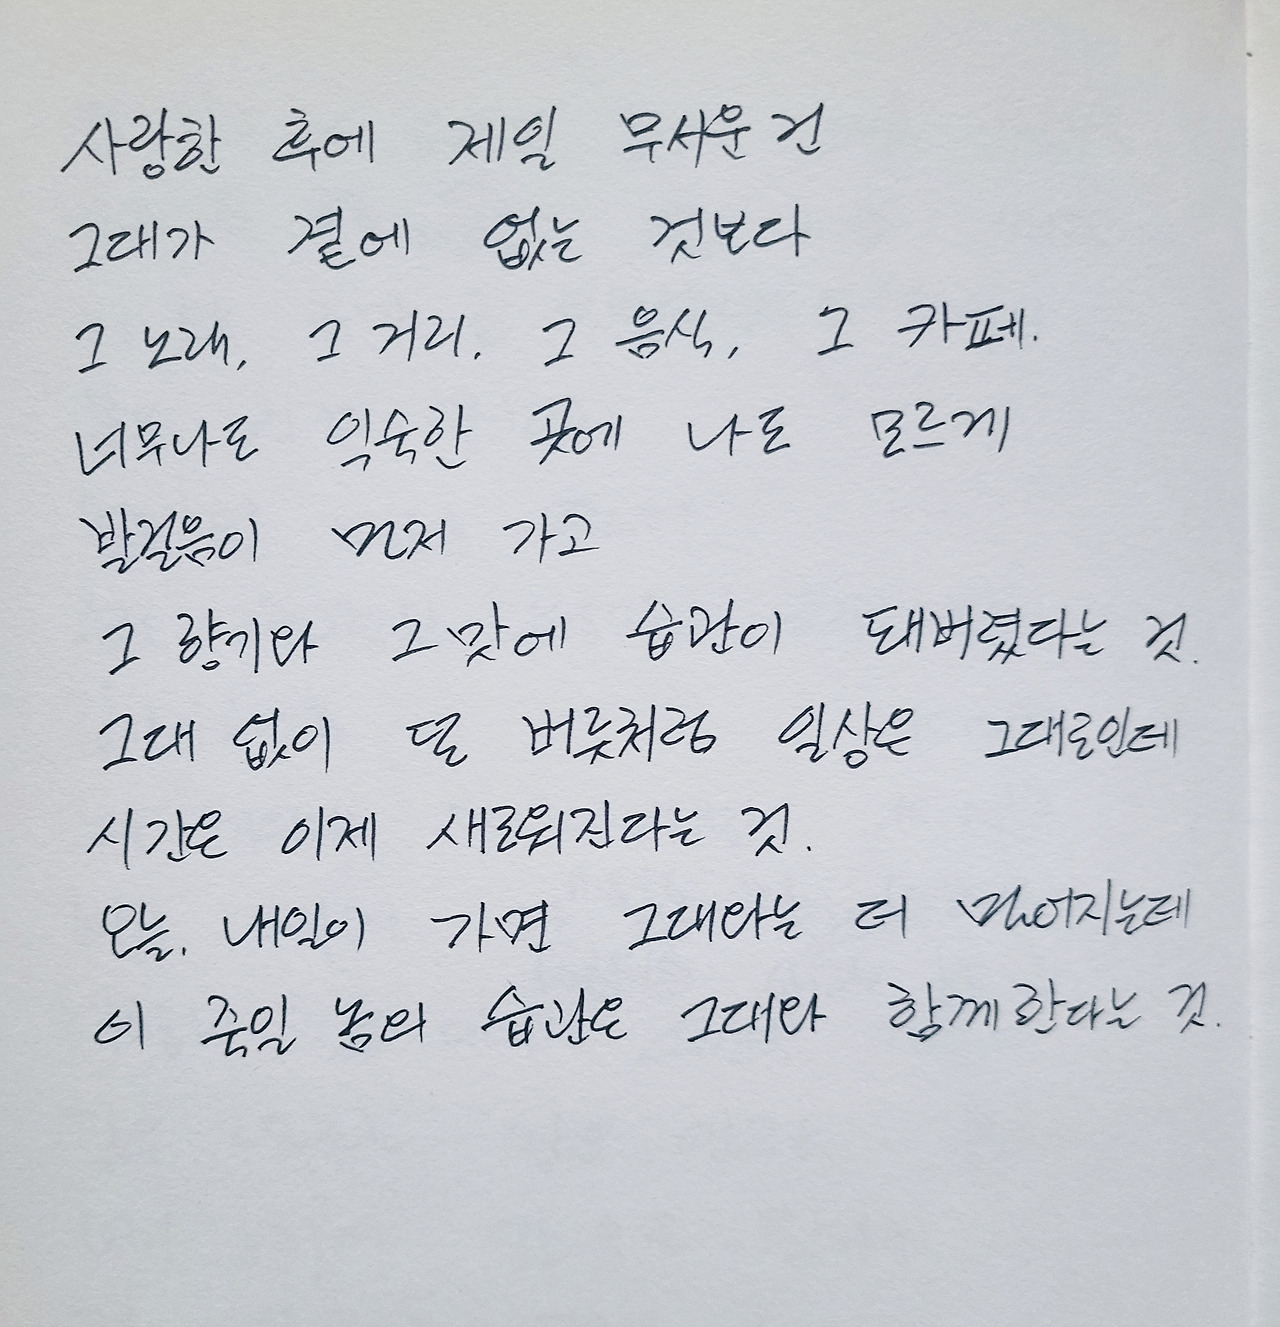 사랑한 후에 제일 무서운 건
그대가 곁에 없는 것보다
그 노래, 그 거리, 그 음식, 그 카페.
너무나도 익숙한 곳에 나도 모르게
발걸음이 먼저 가고
그 향기와 그 맛에 습관이 돼버렸다는 것.
그대 없이 덜 버릇처럼 일상은 그대로인데
시간은 이제 새로워진다는 것.
오늘, 내일이 가면 그대와는 더 멀어지는데
이 죽일 놈의 습관은 그대와 함께한다는 것.